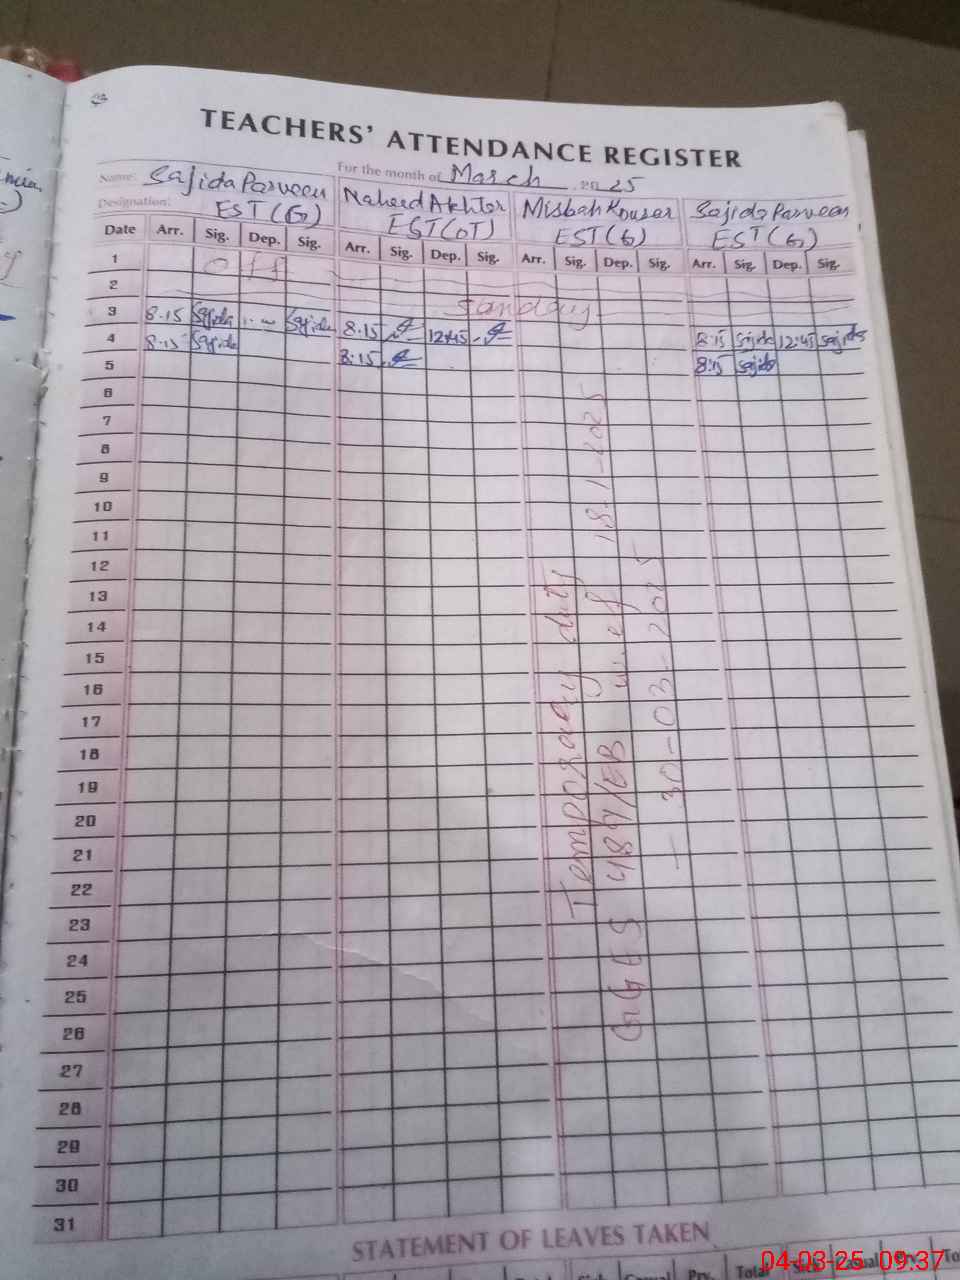 TEACHERS' ATTENDANCE REGISTER
For the month of March 2025
Name: Sajida Parveen Naheed Akhter Misbah Kouser Sajida Parveen
Designation: EST (G) EST (OT) EST (G) EST (G)
Date Arr. Sig. Dep. Sig. Arr. Sig. Dep. Sig. Arr. Sig. Dep. Sig. Arr. Sig. Dep. Sig.
1 off
2 Sanday
3 8.15 Sajida Sajida 8.15 12:45 8:15 Sajida 12:45 Sajida
4 8.15 Sajida 8:15 8:15 Sajida
5
6
7
8
9
10
11
12
13
14
15
16
17
18
19
20
21
22
23
24
25
26
27
28
29
30
31
Temporary duty
GGES 489/EB w.e.f 18-1-2025
- 30-03-2025
STATEMENT OF LEAVES TAKEN
Casual Prv. Total Sick Casual Prv.
04-03-25 09:37